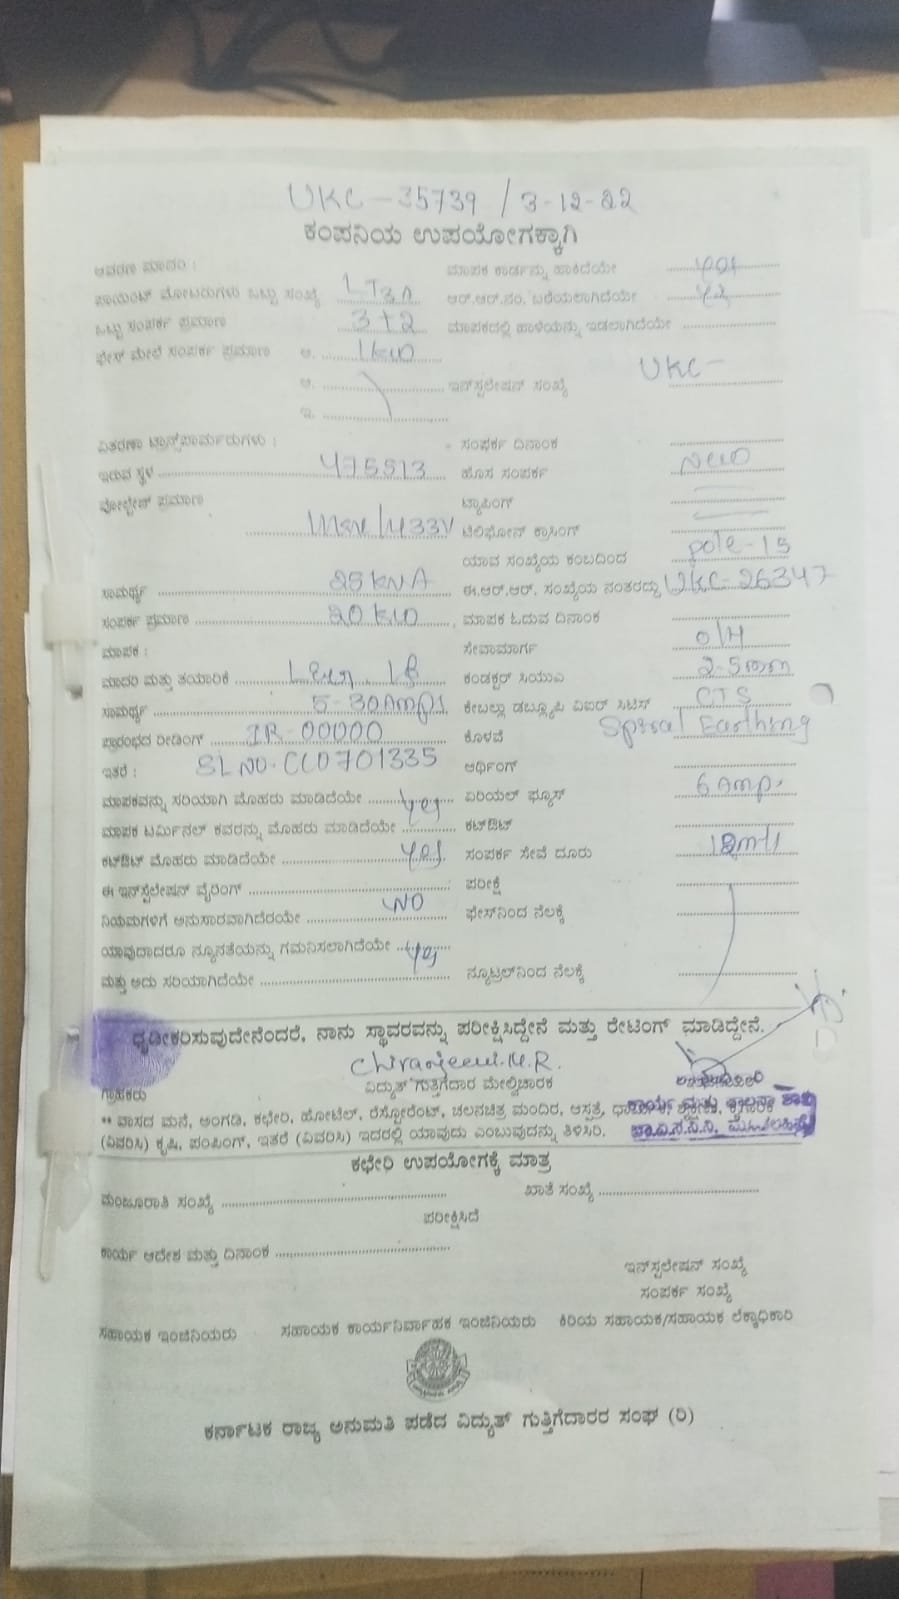 UKC-35739 / 3-12-22
ಕಂಪನಿಯ ಉಪಯೋಗಕ್ಕಾಗಿ
ಆವರಣ ಮಾದರಿ : ಮಾಪಕ ಕಾರ್ಡನ್ನು ಹಾಕಿದೆಯೇ yes
ಪಾಯಿಂಟ್ ಮೋಟರುಗಳು ಒಟ್ಟು ಸಂಖ್ಯೆ LT3A ಆರ್.ಆರ್.ನಂ. ಬರೆಯಲಾಗಿದೆಯೇ
ಒಟ್ಟು ಸಂಪರ್ಕ ಪ್ರಮಾಣ 3+2 ಮಾಪಕದಲ್ಲಿ ಹಾಳೆಯನ್ನು ಇಡಲಾಗಿದೆಯೇ
ಫೇಸ್ ಮೇಲೆ ಸಂಪರ್ಕ ಪ್ರಮಾಣ ಅ. 1kw
ಆ. ಇನ್‌ಸ್ಟಲೇಷನ್ ಸಂಖ್ಯೆ UKC-
ಇ.
ವಿತರಣಾ ಟ್ರಾನ್ಸ್‌ಫಾರ್ಮರುಗಳು : ಸಂಪರ್ಕ ದಿನಾಂಕ
ಇರುವ ಸ್ಥಳ 475513 ಹೊಸ ಸಂಪರ್ಕ New
ವೋಲ್ಟೇಜ್ ಪ್ರಮಾಣ ಟ್ಯಾಪಿಂಗ್
/433V ಟೆಲಿಫೋನ್ ಕ್ರಾಸಿಂಗ್
ಯಾವ ಸಂಖ್ಯೆಯ ಕಂಬದಿಂದ pole-15
ಸಾಮರ್ಥ್ಯ 25kVA ಈ.ಆರ್.ಆರ್. ಸಂಖ್ಯೆಯ ನಂತರದ್ದು UKC-26347
ಸಂಪರ್ಕ ಪ್ರಮಾಣ 20kw ಮಾಪಕ ಓದುವ ದಿನಾಂಕ
ಮಾಪಕ : ಸೇವಾಮಾರ್ಗ O/H
ಮಾದರಿ ಮತ್ತು ತಯಾರಿಕೆ ಕಂಡಕ್ಟರ್ ಸಿಯುಎ 2-5mm
ಸಾಮರ್ಥ್ಯ 5-30Amps ಕೇಬಲ್ಲು ಡಬ್ಲ್ಯೂಪಿ ಏಐರ್ ಸಿಟಿಸ್ CTS
ಪ್ರಾರಂಭದ ರೀಡಿಂಗ್ IR-00000 ಕೊಳವೆ Spiral Earthing
ಇತರೆ : SL NO. CL0701335 ಆರ್ಥಿಂಗ್
ಮಾಪಕವನ್ನು ಸರಿಯಾಗಿ ಮೊಹರು ಮಾಡಿದೆಯೇ yes ಏರಿಯಲ್ ಫ್ಯೂಸ್ 6 Amp.
ಮಾಪಕ ಟರ್ಮಿನಲ್ ಕವರನ್ನು ಮೊಹರು ಮಾಡಿದೆಯೇ ಕಟ್‌ಔಟ್
ಕಟ್‌ಔಟ್ ಮೊಹರು ಮಾಡಿದೆಯೇ yes ಸಂಪರ್ಕ ಸೇವೆ ದೂರು
ಈ ಇನ್‌ಸ್ಟಲೇಷನ್ ವೈರಿಂಗ್ ಪರೀಕ್ಷೆ
ನಿಯಮಗಳಿಗೆ ಅನುಸಾರವಾಗಿದೆರಯೇ NO ಫೇಸ್‌ನಿಂದ ನೆಲಕ್ಕೆ
ಯಾವುದಾದರೂ ನ್ಯೂನತೆಯನ್ನು ಗಮನಿಸಲಾಗಿದೆಯೇ yes
ಮತ್ತು ಅದು ಸರಿಯಾಗಿದೆಯೇ ನ್ಯೂಟ್ರಲ್‌ನಿಂದ ನೆಲಕ್ಕೆ
ಧೃಡೀಕರಿಸುವುದೇನೆಂದರೆ, ನಾನು ಸ್ಥಾವರವನ್ನು ಪರೀಕ್ಷಿಸಿದ್ದೇನೆ ಮತ್ತು ರೇಟಿಂಗ್ ಮಾಡಿದ್ದೇನೆ.
Chiranjeevi.M.R.
ಗ್ರಾಹಕರು ವಿದ್ಯುತ್ ಗುತ್ತಿಗೆದಾರ ಮೇಲ್ವಿಚಾರಕ
** ವಾಸದ ಮನೆ, ಅಂಗಡಿ, ಕಛೇರಿ, ಹೋಟೆಲ್, ರೆಸ್ಟೋರೆಂಟ್, ಚಲನಚಿತ್ರ ಮಂದಿರ, ಆಸ್ಪತ್ರೆ,
(ವಿವರಿಸಿ) ಕೃಷಿ, ಪಂಪಿಂಗ್, ಇತರೆ (ವಿವರಿಸಿ) ಇದರಲ್ಲಿ ಯಾವುದು ಎಂಬುವುದನ್ನು ತಿಳಿಸಿರಿ.
ಕಛೇರಿ ಉಪಯೋಗಕ್ಕೆ ಮಾತ್ರ
ಮಂಜೂರಾತಿ ಸಂಖ್ಯೆ ಖಾತೆ ಸಂಖ್ಯೆ
ಪರೀಕ್ಷಿಸಿದೆ
ಕಾರ್ಯ ಆದೇಶ ಮತ್ತು ದಿನಾಂಕ
ಇನ್‌ಸ್ಟಲೇಷನ್ ಸಂಖ್ಯೆ
ಸಂಪರ್ಕ ಸಂಖ್ಯೆ
ಸಹಾಯಕ ಇಂಜಿನಿಯರು ಸಹಾಯಕ ಕಾರ್ಯನಿರ್ವಾಹಕ ಇಂಜಿನಿಯರು ಕಿರಿಯ ಸಹಾಯಕ/ಸಹಾಯಕ ಲೆಕ್ಕಾಧಿಕಾರಿ
ಕರ್ನಾಟಕ ರಾಜ್ಯ ಅನುಮತಿ ಪಡೆದ ವಿದ್ಯುತ್ ಗುತ್ತಿಗೆದಾರರ ಸಂಘ (ರಿ)